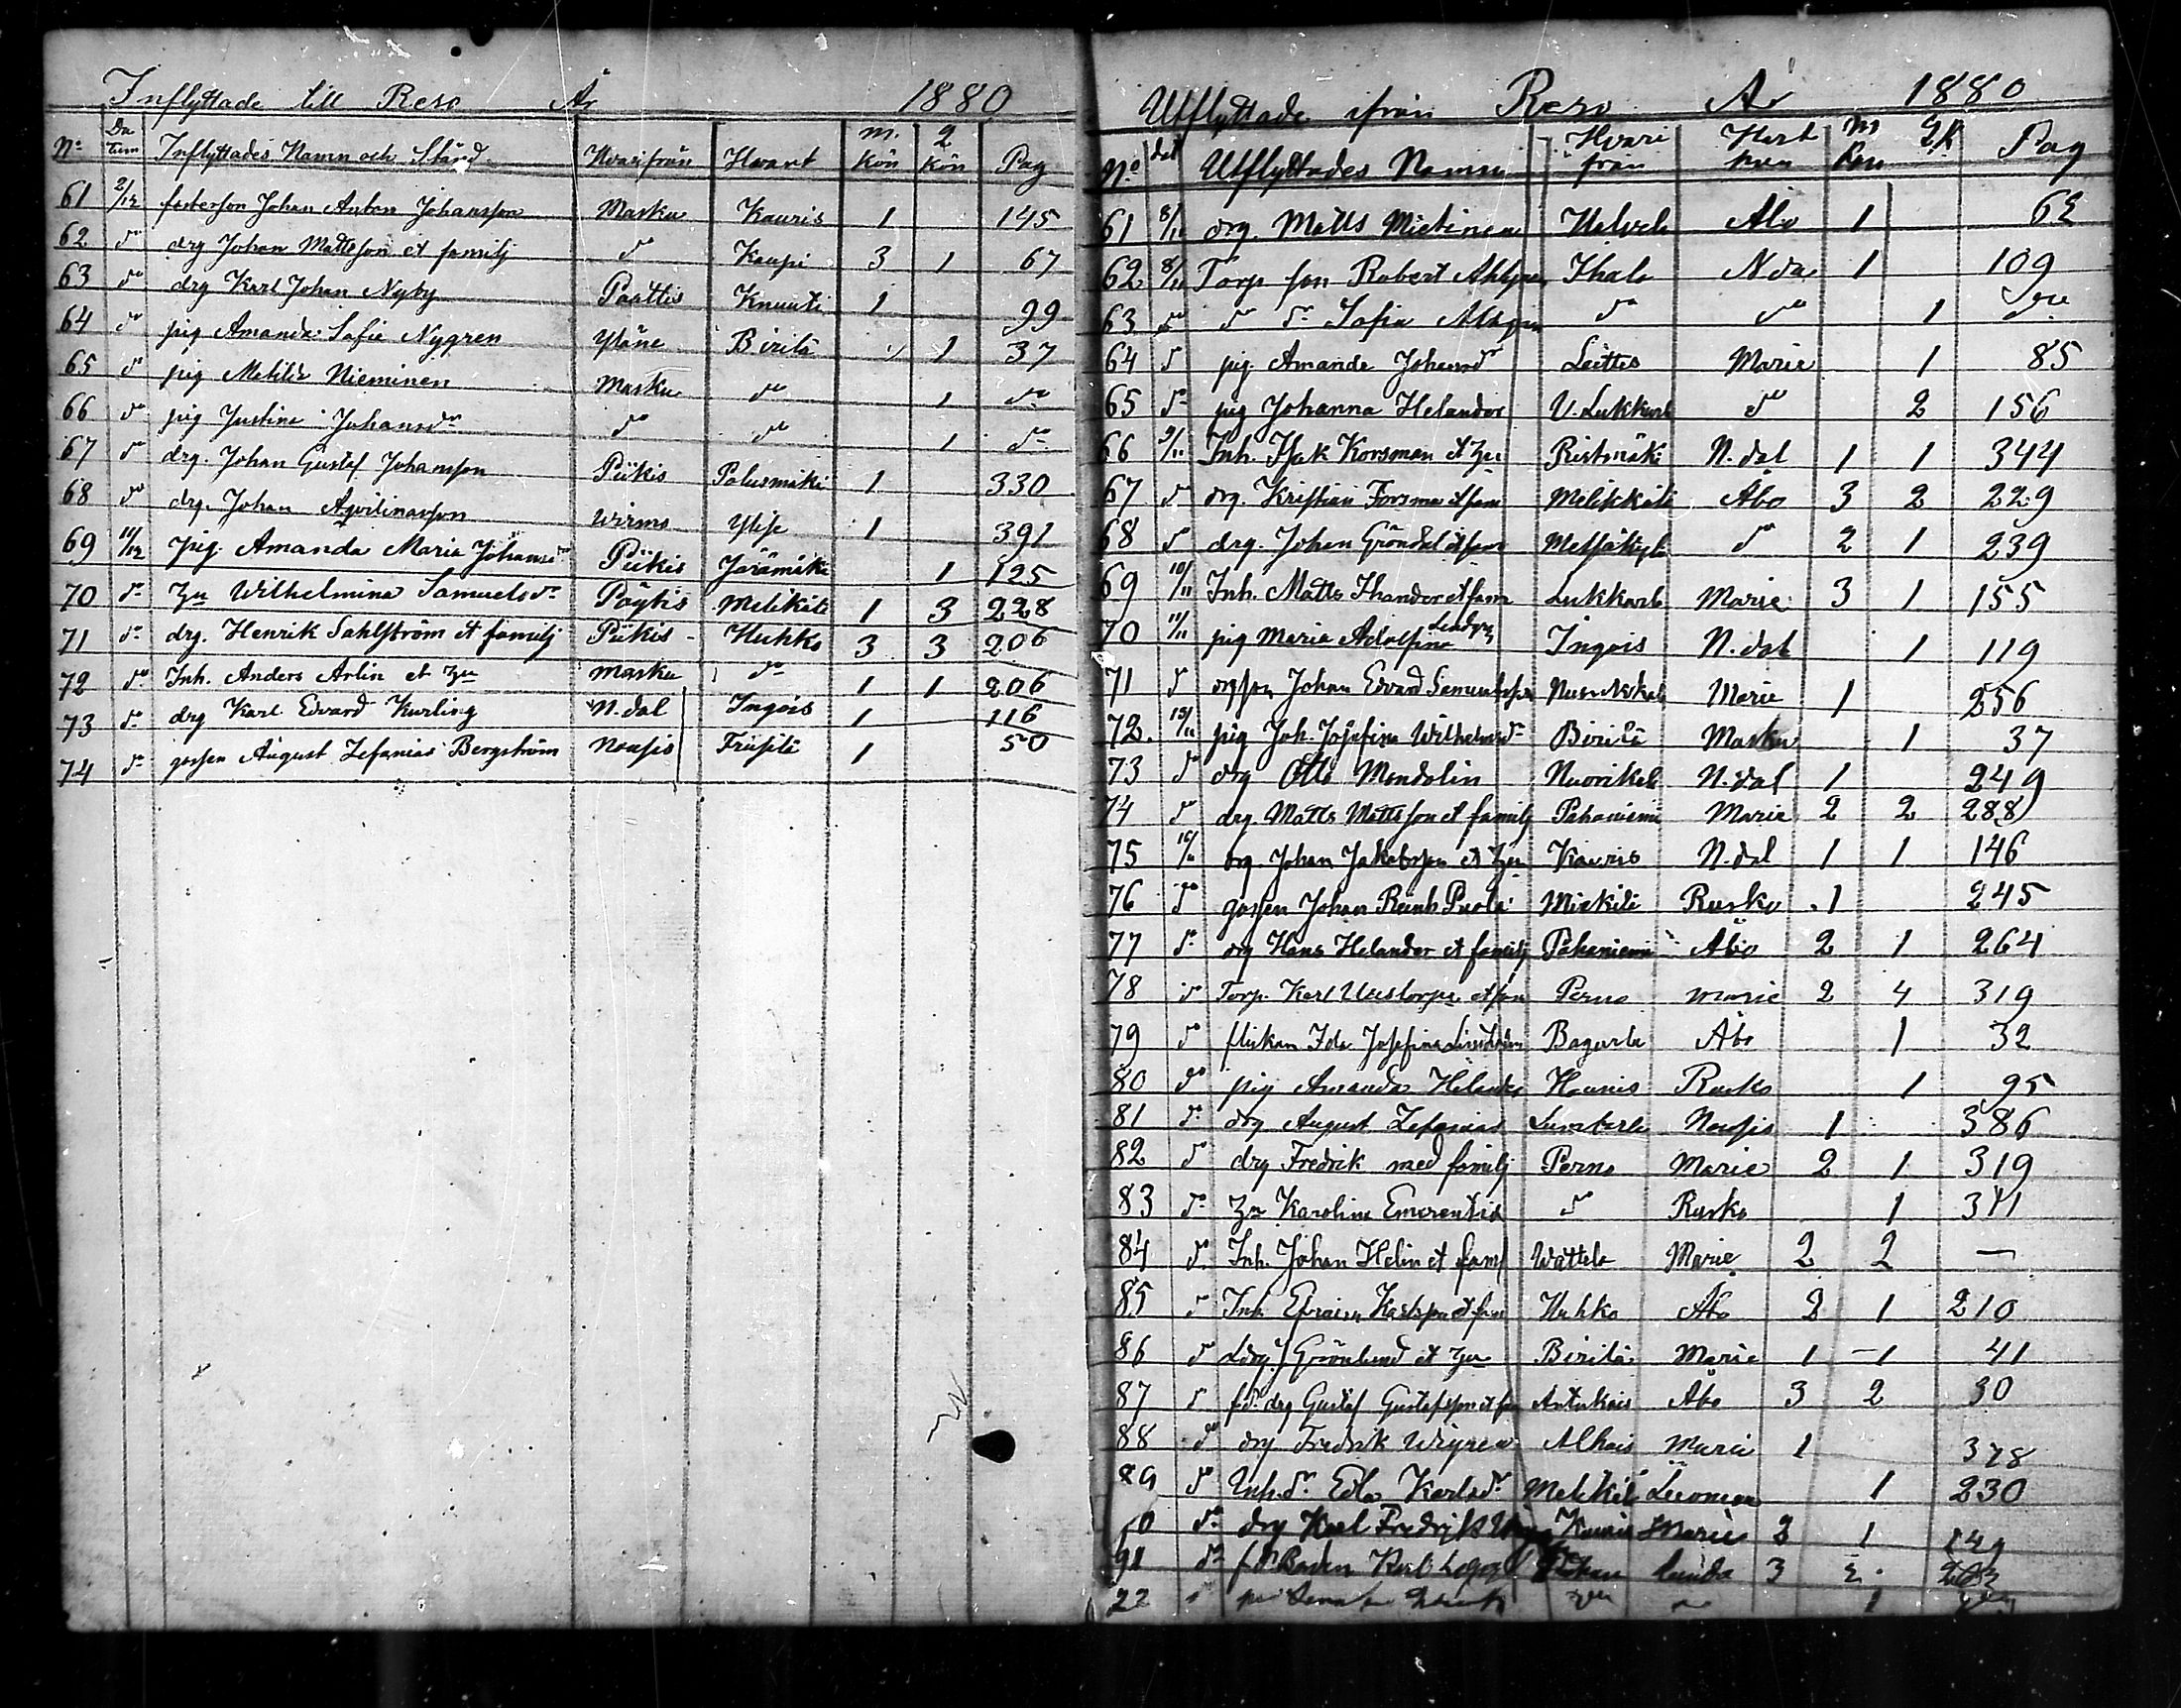 Inflyttade till Reso År 1880
No Datum Inflyttades Namn och Stånd Hvarifrån Hvart m. kön q kön Pag
61 2/12 fosterson Johan Anton Johansson Masku Kauris 1 145
62 do drg Johan Mattsson et familj do Kaupi 3 1 67
63 do drg Karl Johan Nyby Paattis Knuuti 1 99
64 do pig Amanda Sofie Nygren Yläne Birilä 1 37
65 do pig Matilda Nieminen Masku do 1 do
66 do pig Justina Johansdr do do 1 do
67 do drg. Johan Gustaf Johansson Piikis Palusmäki 1 330
68 do drg. Johan Aqvilinasson Wirmo Ylije 1 391
69 11/12 pig. Amanda Maria Johansdr Piikis Järämäki 1 125
70 do Hu Wilhelmina Samuelsdr Pöytis Melikäli 1 3 228
71 do drg. Henrik Sahlström et familj Piikis Huhko 3 3 206
72 do Inh. Anders Arlin et Hu Masku do 1 1 206
73 do drg Karl Edvard Kurling N.dal Ingois 1 116
74 do gossen August Zefanias Bergström Nousis Friisilä 1 50
Utflyttade ifrån Reso År 1880
No dat Utflyttades Namn Hvarifrån Hvart m kön q k Pag
61 8/11 drg. Matts Mietinen Åbo 1 62
62 8/11 Torp son Robert Ihala Nda 1 109
63 do do do Sofia do do 1 do
64 do pig. Amanda Johansdr Leittes Marie 1 85
65 do pig Johanna Helander U. Lukkarla do 2 156
66 9/11 Inh. Isak Korsman et Hu Ristimäki N.dal 1 1 344
67 do drg. Kristian Forsman et fam Melikkälä Åbo 3 2 229
68 do drg. Johan Gröndal et fam Metsäkylä do 2 1 239
69 10/11 Inh. Matts Ihander et fam Lukkarla Marie 3 1 155
70 11/11 pig Maria Adolfina Lindgren Ingois N.dal 1 119
71 do drgson Johan Edvard Samuelsson Marie 1 256
72. 15/11 pig Joh. Josefina Wilhelmsdr Birilä Masku 1 37
73 do drg Otto Mandolin Nuorikkala N.dal 1 249
74 do drg Matts Mattsson et familj Pahaniemi Marie 2 2 288
75 16/11 drg. Johan Jakobsson et Hu Kauris N.dal 1 1 146
76 do gossen Johan Reinh Paola Rusko 1 245
77 do drg Hans Helander et familj Pahaniemi Åbo 2 1 264
78 do Torp. Karl et fam Perno Marie 2 4 319
79 do flickan Ida Josefina Lindström Bagarla Åbo 1 32
80 do pig Amanda Helander Haunis Rusko 1 95
81 do drg August Zefanias Lumparla Nousis 1 386
82 do drg Fredrik med familj Perno Marie 2 1 319
83 do Hu Karolina Emerentia do Rusko 1 311
84 do Inh. Johan Helin et fam Wättelä Marie 2 2 —
85 do Inh. Efraim Karlsson et fam Huhko Åbo 2 1 210
86 do drg J Grönlund et Hu Birilä Marie 1 1 41
87 do fd. drg Gustaf Gustafsson et fam Antukais Åbo 3 2 30
88 do drg Fredrik Wigren Alhais Marie 1 378
89 do Inh. dr Edla Karlsdr Melikkilä 1 230
do drg Karl Fredrik Kauris Marie 2 1 149
91 do fd Karl 3